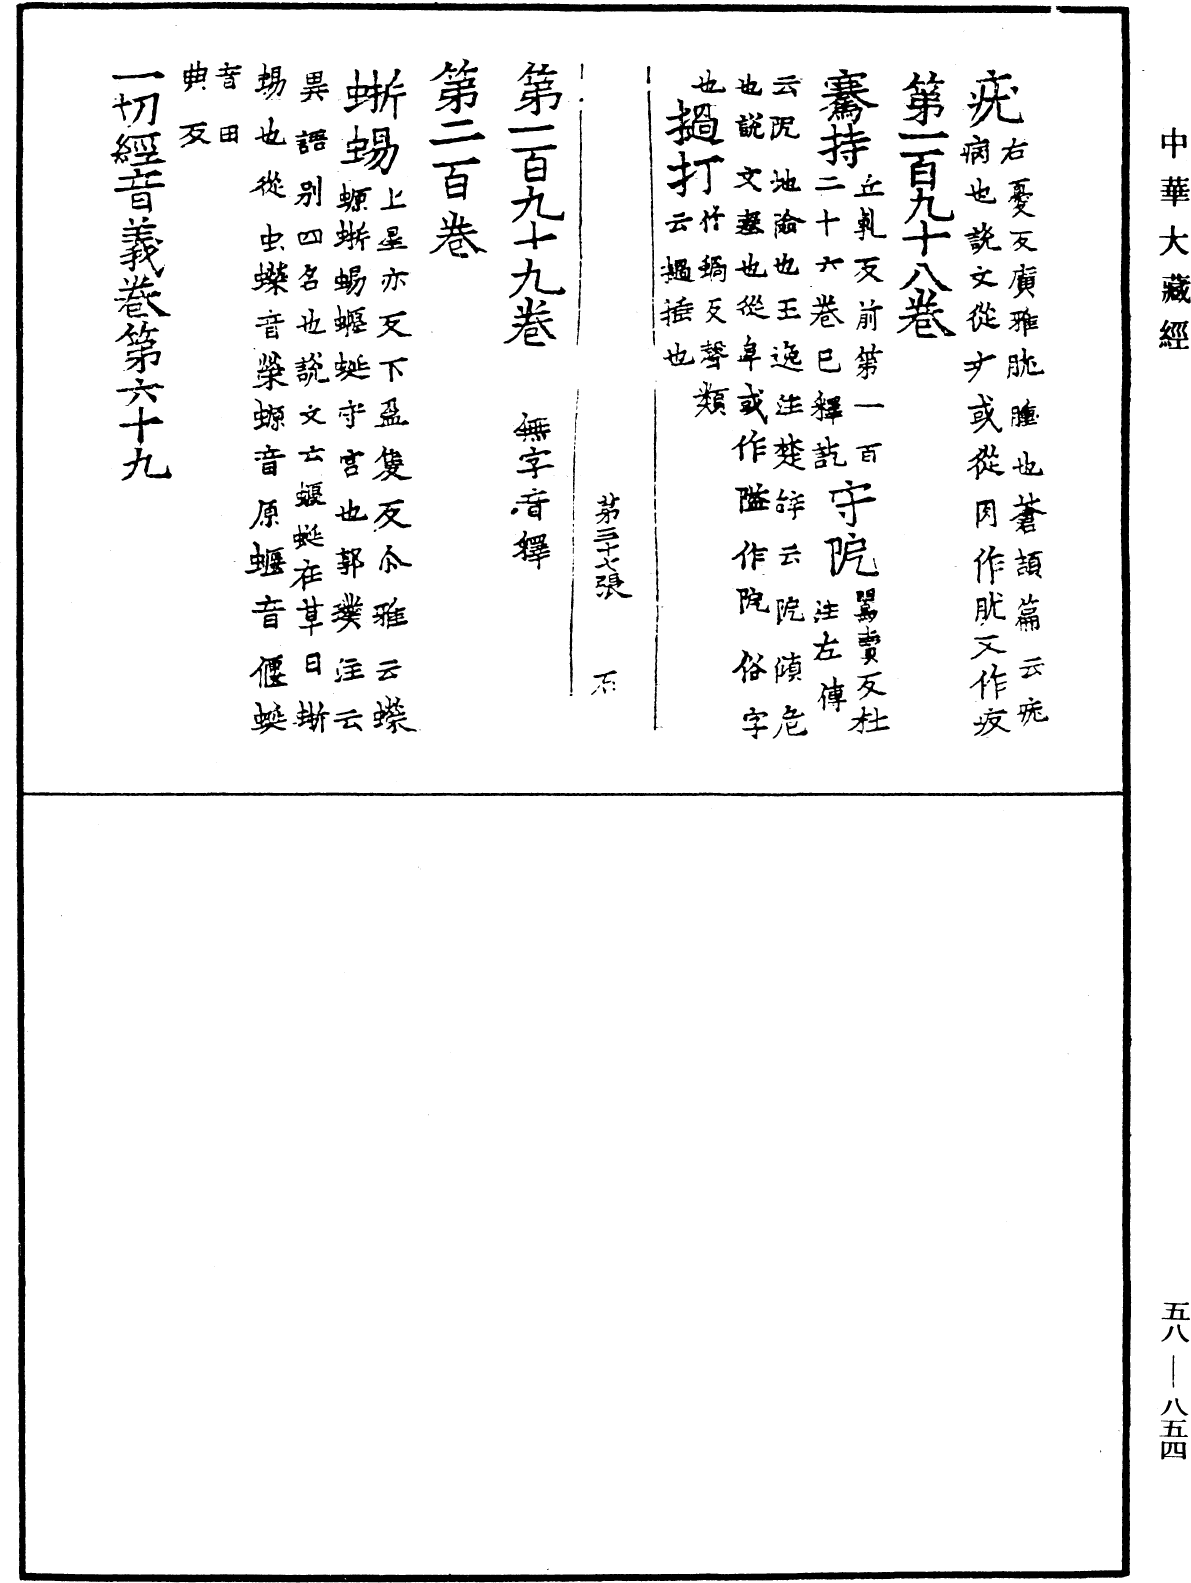 中華大藏經
疣
右憂反廣雅肬腫也蒼頡篇云疣
病也說文從疒或從肉作肬又作疻
第一百九十八卷
騫持
丘軋反前第一百
二十六卷已釋訖
守阨
罵賣反杜
注左傳
云阨地險也王逸注楚辞云阨傾危
也說文塞也從阜或作隘作阸俗字
也
撾打
竹蝸反聲類
云撾捶也
第三十七張 石
第一百九十九卷 無字音釋
第二百卷
蜥蜴
上星亦反下盈隻反尒雅云蠑
螈蜥蜴蝘蜓守宮也郭璞注云
異語別四名也說文云蝘蜓在草曰蜥
蜴也從虫蠑音榮螈音原蝘音偃蜓
音田
典反
一切經音義卷第六十九
五八—八五四